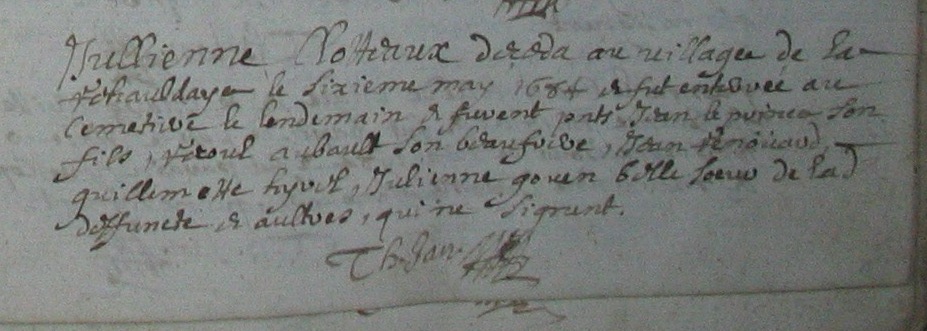 Jullienne Clotteaux deceda au village de la
rehauldaye le sixieme may 1684 & fut enterree au
Cemetiere le lendemain & furent pnts Jean le prince son
fils, raoul aubault son beaufrere, Jean renouard,
guillemette hyvel, Julienne goven belle soeur de lad
deffuncte & aultres, qui ne signent.